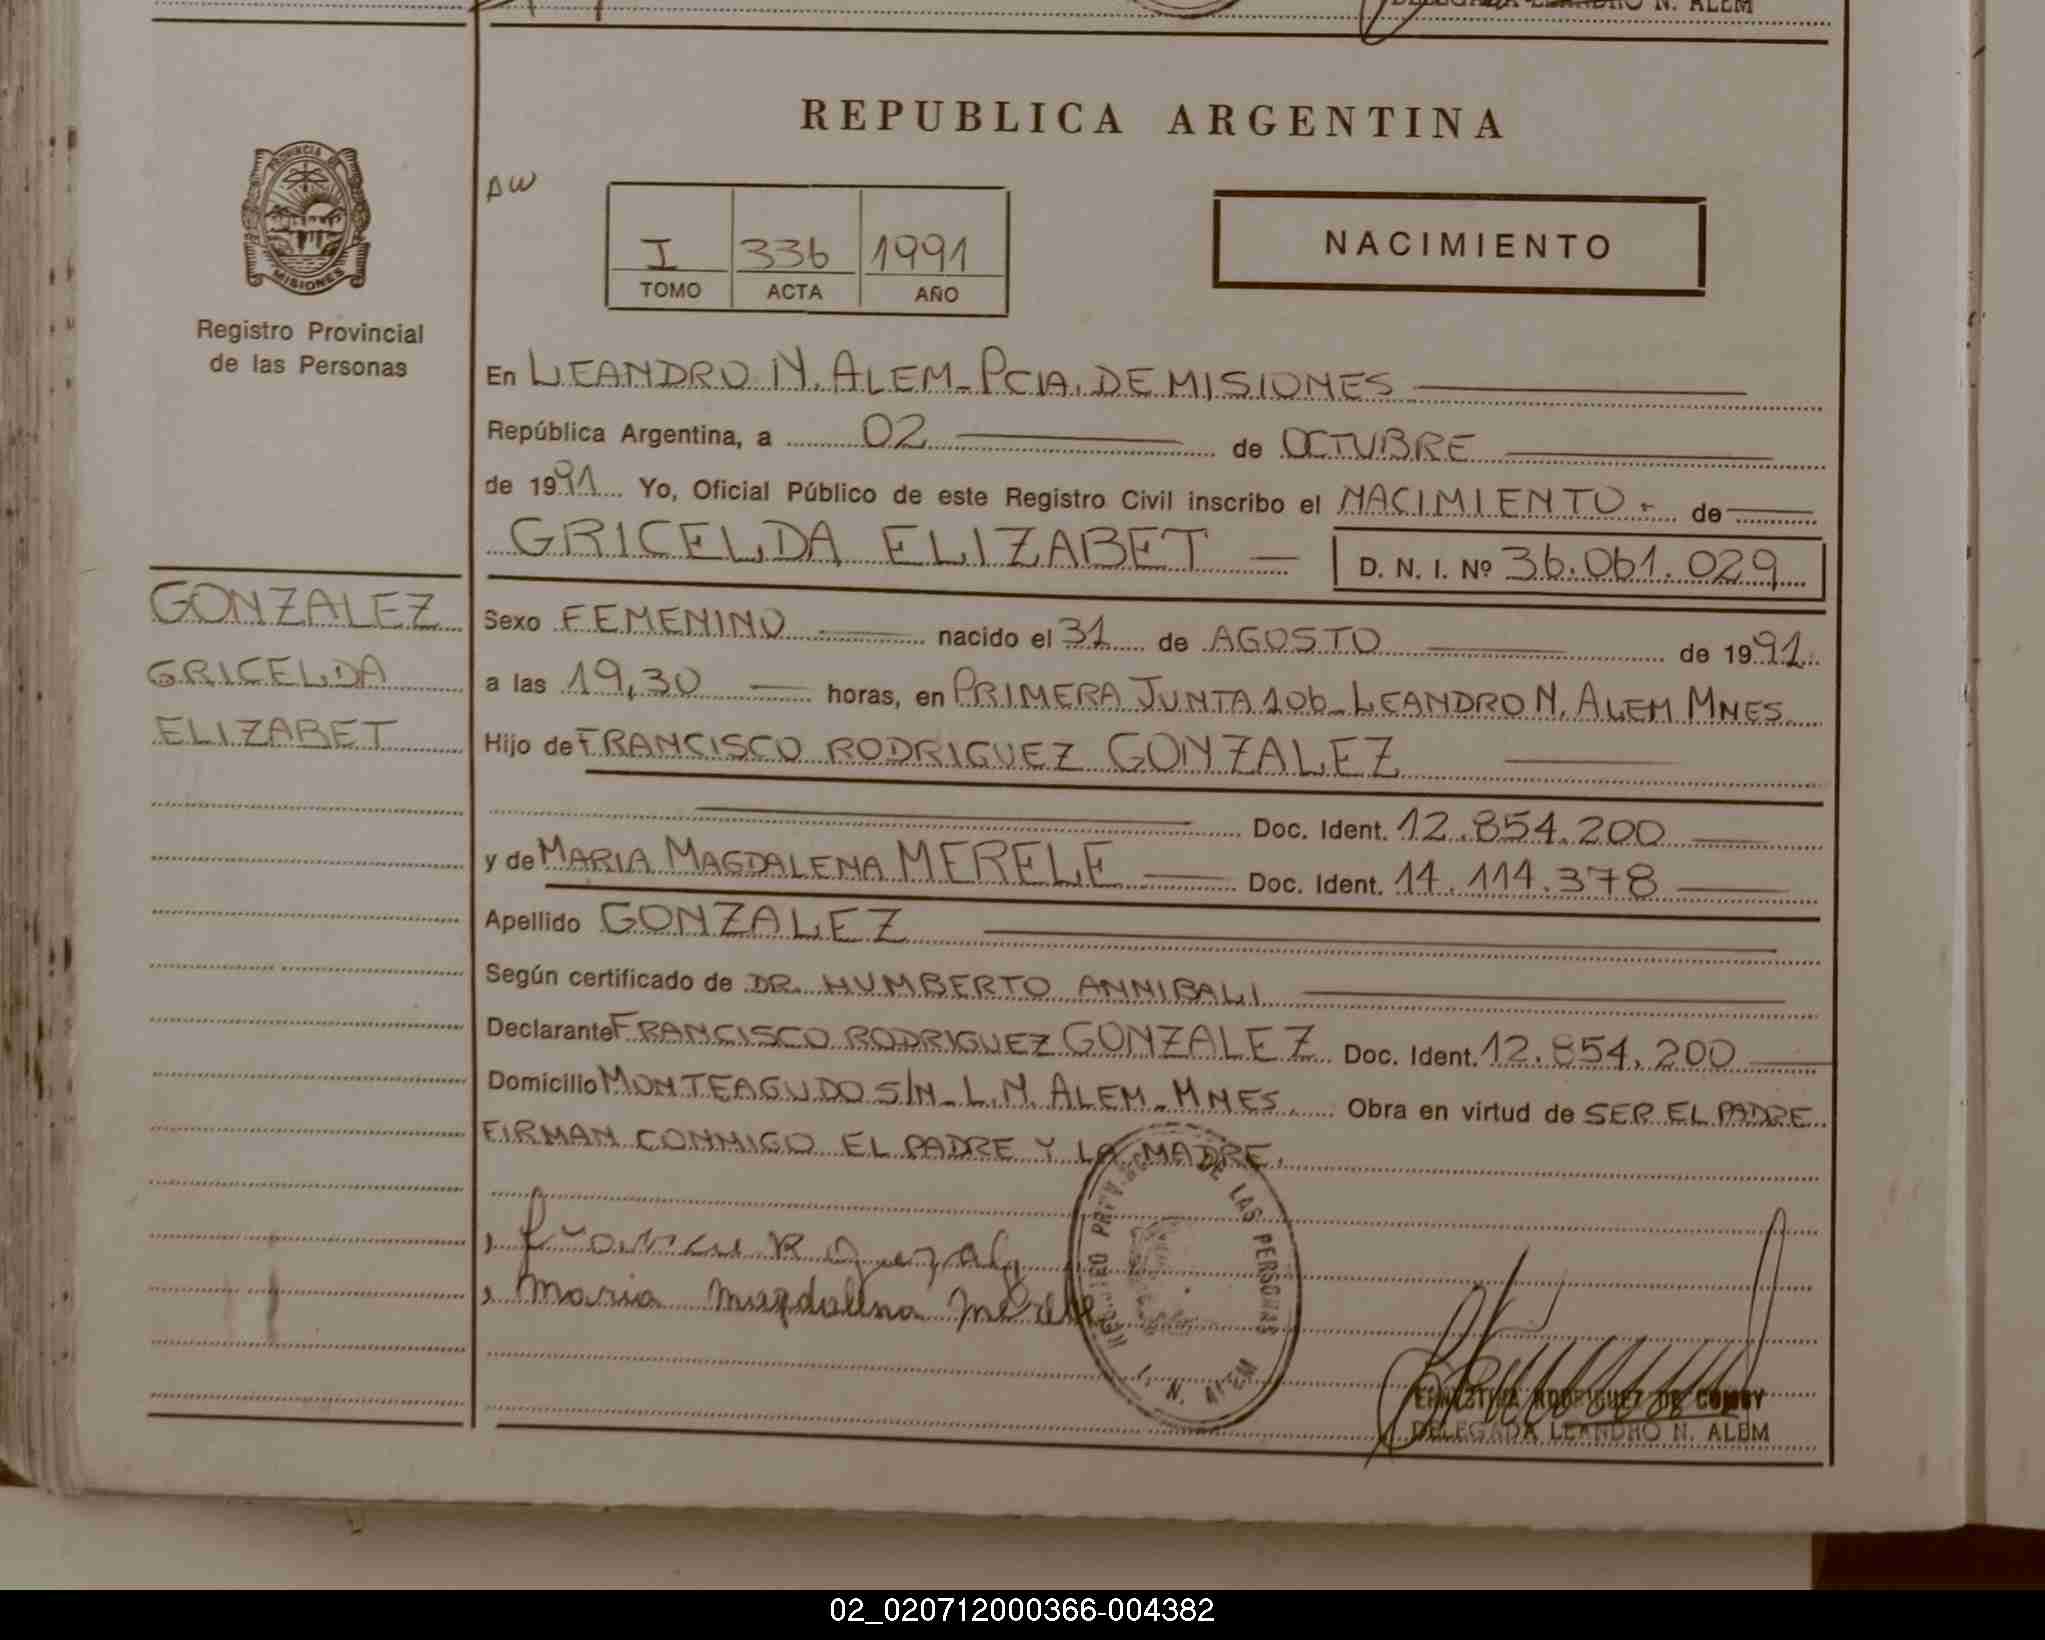 DELEGADA LEANDRO N. ALEM
REPUBLICA ARGENTINA
PROVINCIA DE
MISIONES
Registro Provincial
de las Personas
AW
I 336 1991
TOMO ACTA AÑO
NACIMIENTO
En LEANDRO N. ALEM - PCIA. DE MISIONES
República Argentina, a 02 de OCTUBRE
de 1991 Yo, Oficial Público de este Registro Civil inscribo el NACIMIENTO.- de
GRICELDA ELIZABET D. N. I. Nº 36.061.029
GONZALEZ
GRICELDA
ELIZABET
Sexo FEMENINO nacido el 31 de AGOSTO de 1991
a las 19,30 horas, en PRIMERA JUNTA 106 - LEANDRO N. ALEM MNES
Hijo de FRANCISCO RODRIGUEZ GONZALEZ
Doc. Ident. 12.854.200
y de MARIA MAGDALENA MERELE Doc. Ident. 14.114.378
Apellido GONZALEZ
Según certificado de DR. HUMBERTO ANNIBALI
Declarante FRANCISCO RODRIGUEZ GONZALEZ Doc. Ident. 12.854.200
Domicilio MONTEAGUDO S/N - L.N. ALEM - MNES Obra en virtud de SER EL PADRE
FIRMAN CONMIGO EL PADRE Y LA MADRE.
Maria Magdalena Merele
DE LAS PERSONAS
L. N. ALEM
RODRIGUEZ DE
DELEGADA LEANDRO N. ALEM
02_020712000366-004382